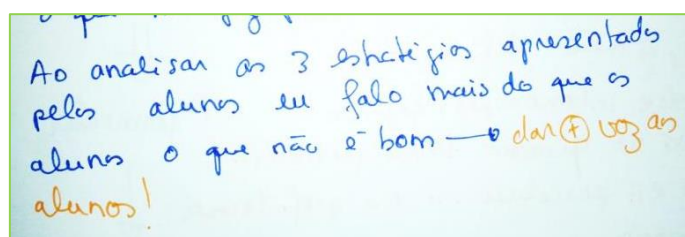 Ao analisar as 3 estratégias apresentadas
pelos alunos eu falo mais do que os
alunos o que não é bom → dar ⊕ voz aos
alunos!